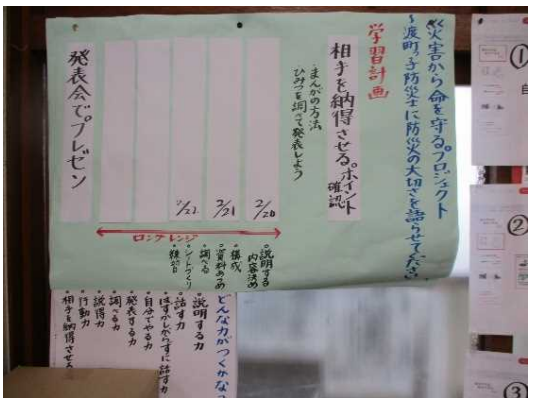 災害から命を守るプロジェクト
～渡町っ子防災士に防災の大切さを語らせてください
学習計画
相手を納得させる。ポイント
確認
・まんがの方法
ひみつを調べて発表しよう
2/20
2/21
2/22
発表会でプレゼン
ロングレンジ
・説明する
内容決め
・構成
・資料あつめ
・調べる
・シートづくり
・練習
どんな力がつくかな?
・説明する力
・話す力
・はずかしがらずに話す力
・自分でやる力
・発表する力
・調べる力
・説得力
・行動力
・相手を納得させる
①
②
③